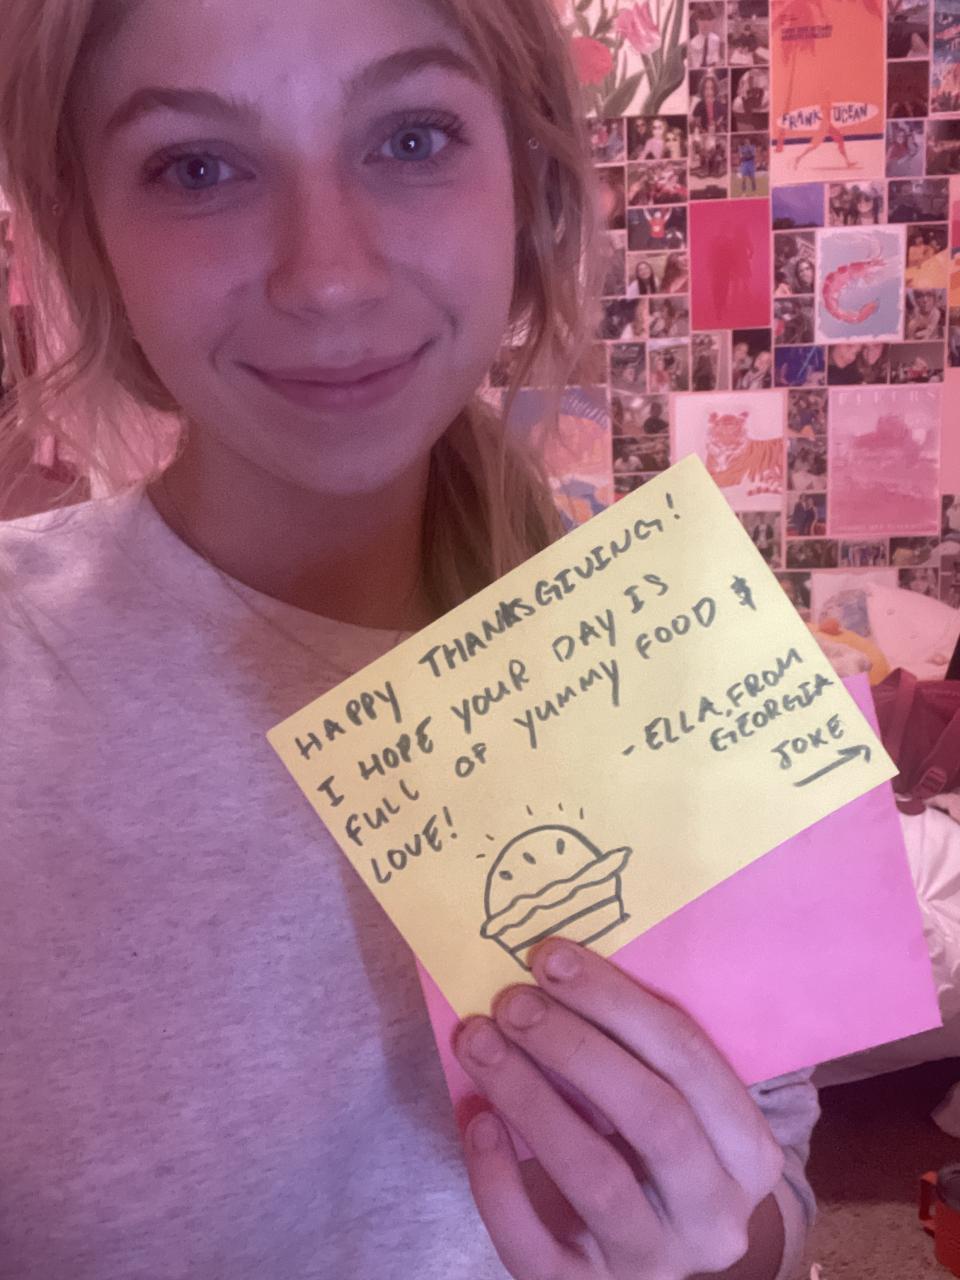 HAPPY THANKSGIVING!
I HOPE YOUR DAY IS
FULL OF YUMMY FOOD &
LOVE!
- ELLA, FROM
GEORGIA
JOKE
FRANK OCEAN